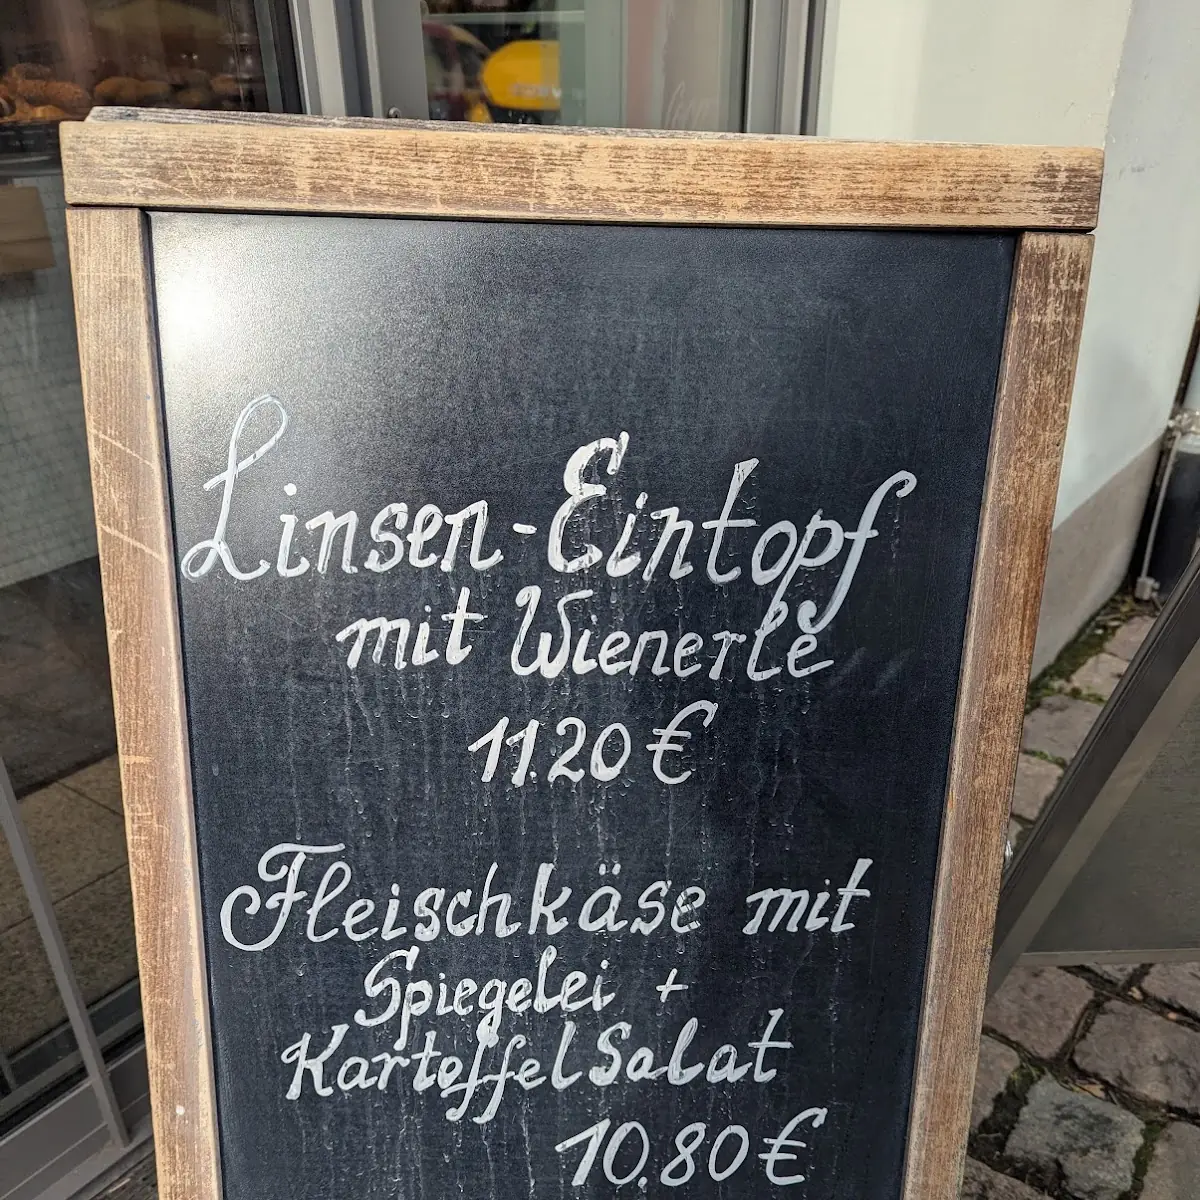 Linsen-Eintopf
mit Wienerle
11.20 €
Fleischkäse mit
Spiegelei +
Kartoffel Salat
10.80 €